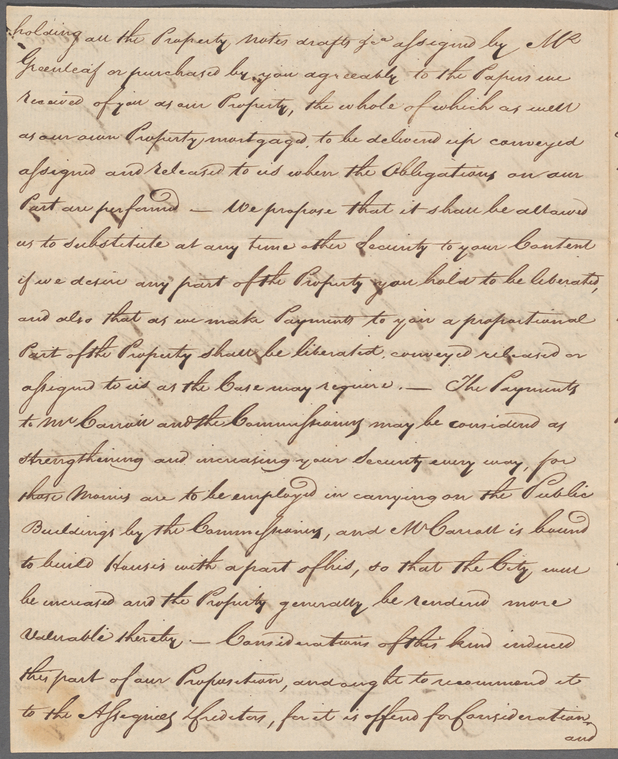 holding all the Property notes drafts &ca assigned by Mr
Greenleaf or purchased by you agreeably to the Papers we
received of you as our Property, the whole of which as well
as our own Property mortgaged, to be delivered up conveyed
assigned and released to us when the Obligations on our
Part are performed — We propose that it shall be allowed
us to substitute at any time other Security to your Content
if we desire any part of the Property you hold to be liberated,
and also that as we make Payments to you a proportional
Part of the Property shall be liberated conveyed released or
assigned to us as the Case may require. — The Payments
to Mr Carroll and the Commissioners may be considered as
strengthening and increasing your Security every way, for
those Monies are to be employed in carrying on the Public
Buildings by the Commissioners, and Mr Carroll is bound
to build Houses with a part of his, so that the City will
be increased and the Property generally be rendered more
valuable thereby. — Considerations of this kind induced
this part of our Proposition, and ought to recommend it
to the Assignees & Creditors, for it is offered for Consideration
and